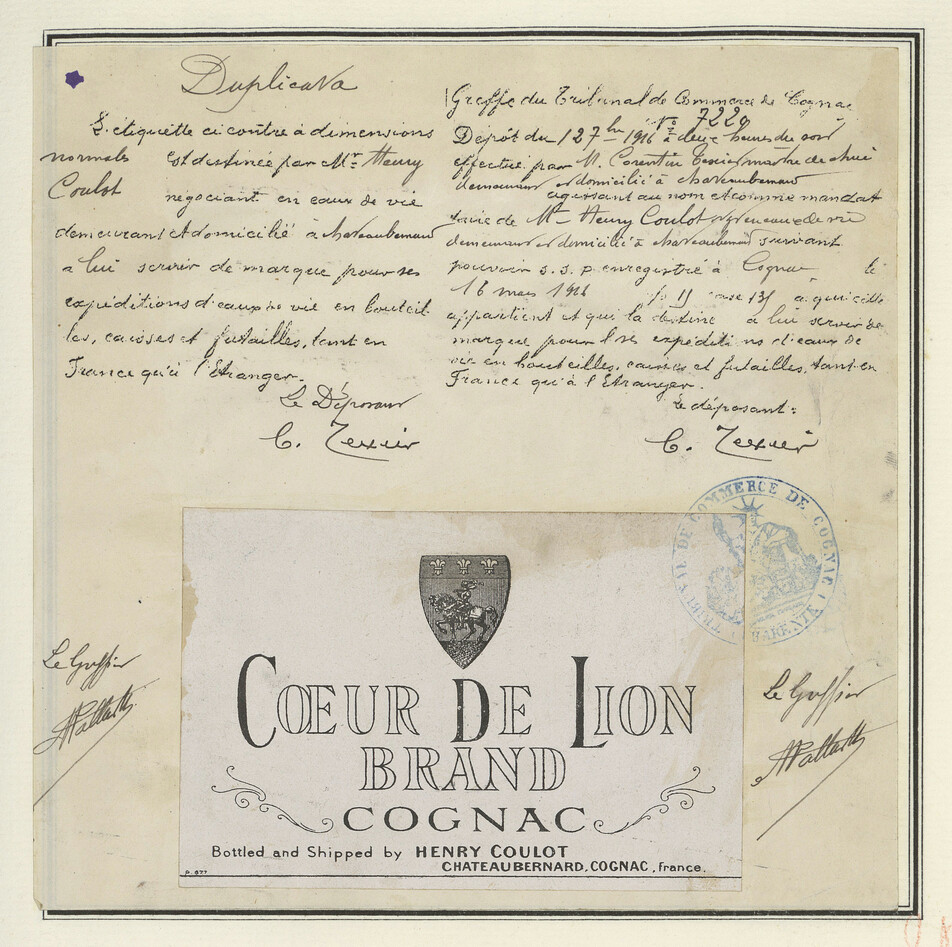 Duplicata
L'étiquette ci contre à dimensions
normales est destinée par Mr. Henry
Coulot négociant en eaux de vie
demeurant et domicilié à chateaubernard
a lui servir de marque pour ses
expéditions d'eaux de vie en bouteil
les, caisses et futailles, tant en
France qu'à l'Etranger.
Le Déposant
C. Texier
Greffe du Tribunal de Commerce de Cognac
No 7220
Dépôt du 1916 à deux heures du soir
effectué par M. Corentin Texier maître de chai
demeurant et domicilié à chateaubernard
agissant au nom et comme mandat
taire de Mr Henry Coulot eaux de vie
demeurant et domicilié à chateaubernard suivant
pouvoir s.s.p enregistré à Cognac le
16 mars 1916 à qui elle
appartient et qui la destine à lui servir de
marque pour ses expéditions d'eaux de
vie en bouteilles, caisses et futailles, tant en
France qu'à l'Etranger.
Le déposant:
C. Texier
TRIBUNAL DE COMMERCE DE COGNAC
CHARENTE
Le Greffier
Le Greffier
CŒUR DE LION
BRAND
COGNAC
Bottled and Shipped by HENRY COULOT
CHATEAUBERNARD, COGNAC, France.
P. 877